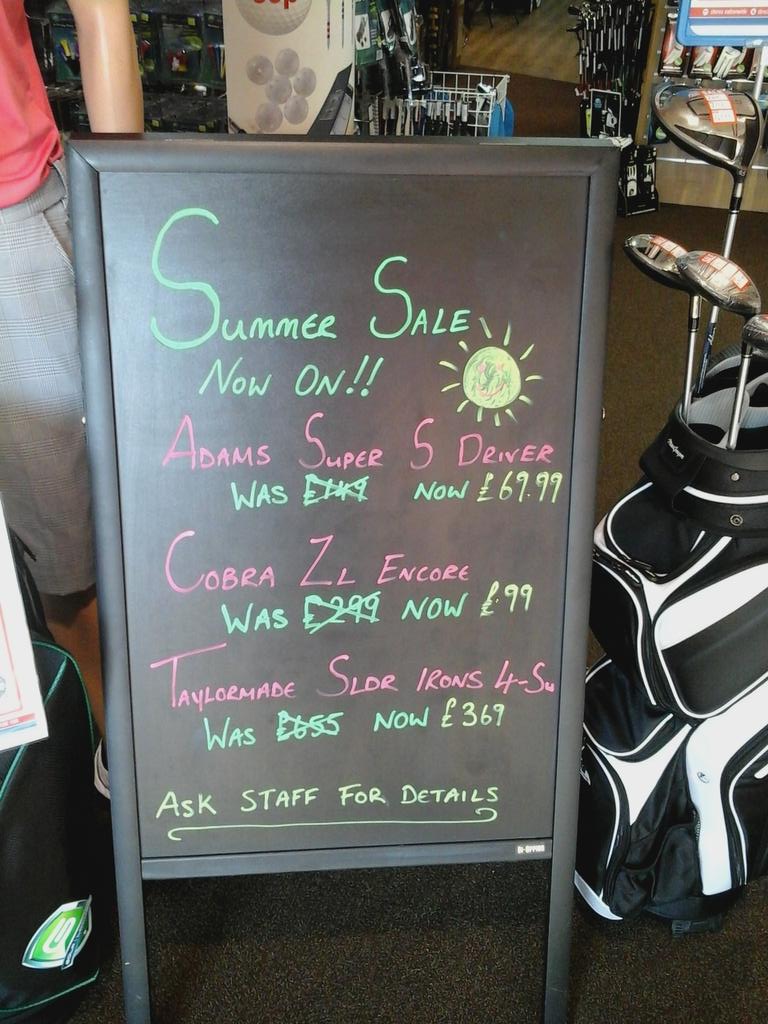 Summer Sale
Now On!!
Adams Super S Driver
Was £149 Now £69.99
Cobra ZL Encore
Was £299 Now £99
Taylormade SLDR Irons 4-SW
Was £655 Now £369
Ask Staff For Details
Bi-Office